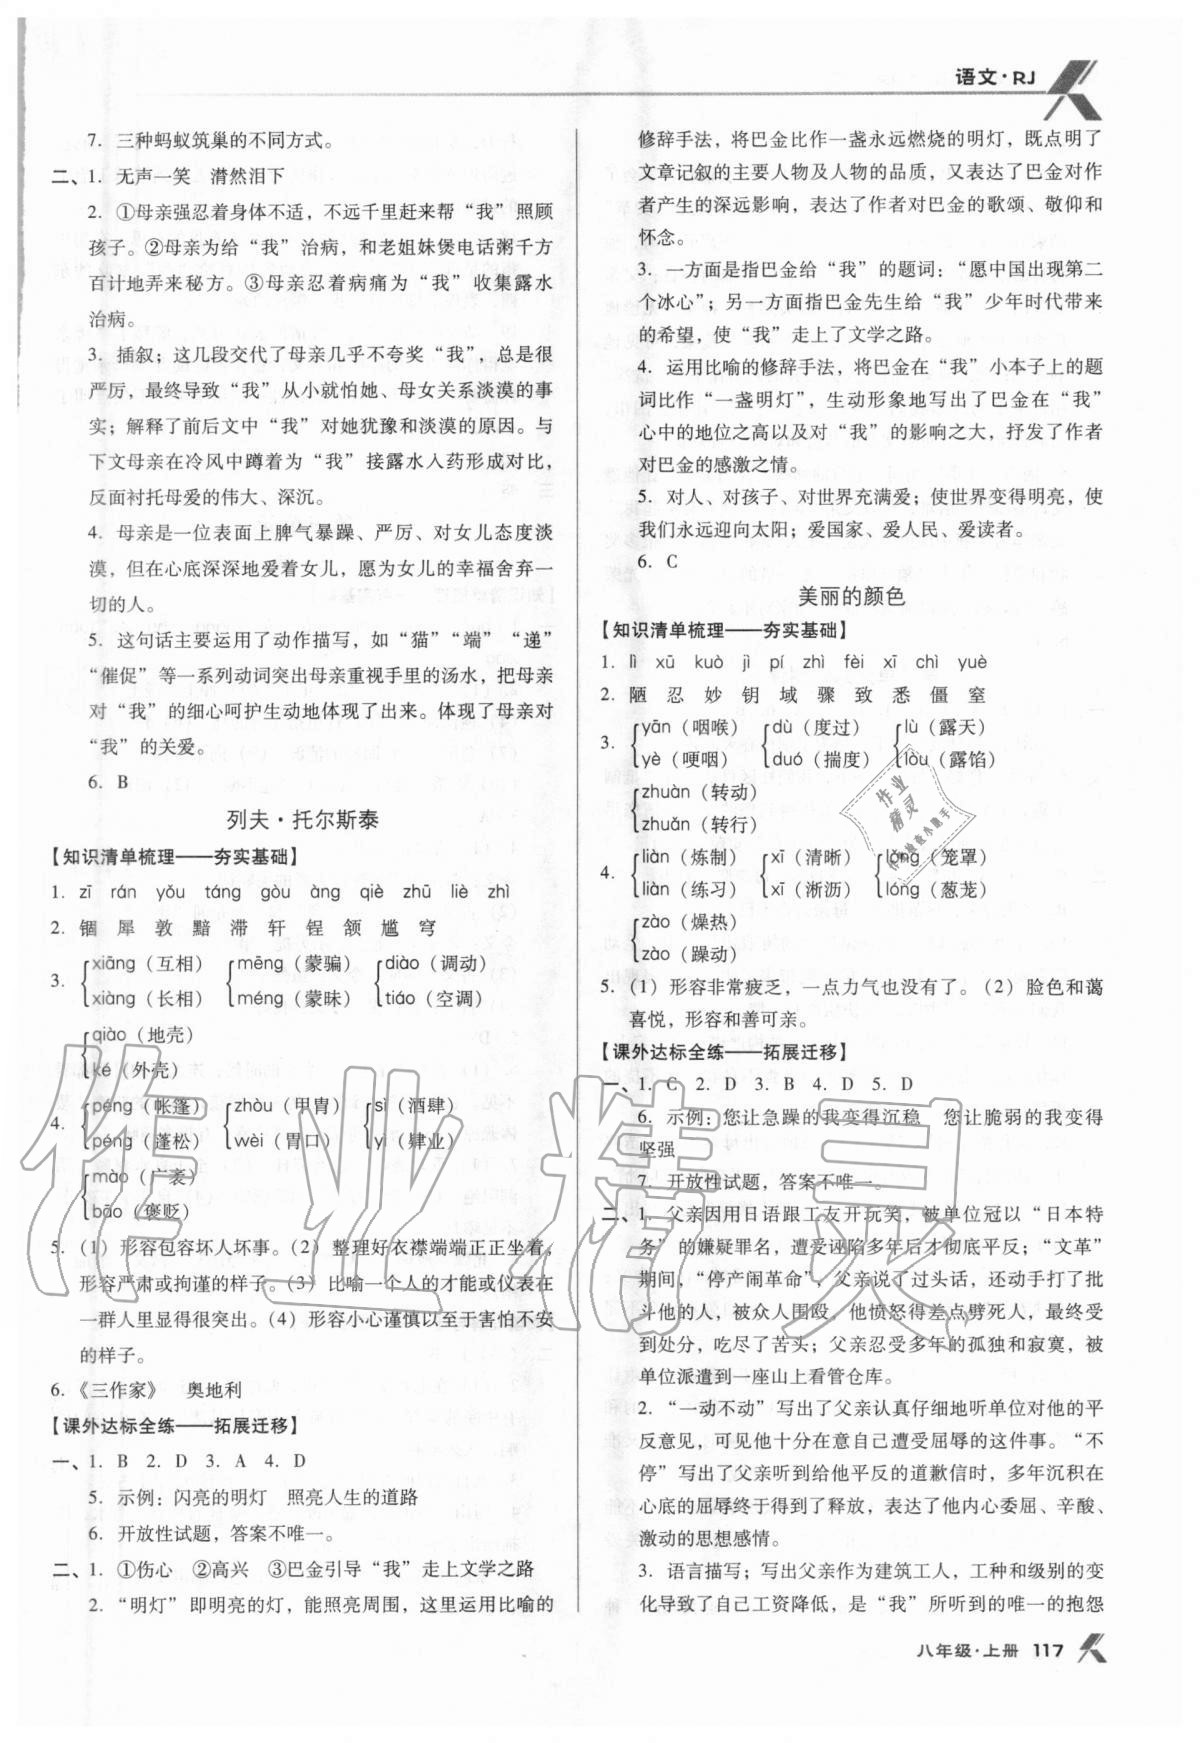 语文·RJ
7. 三种蚂蚁筑巢的不同方式。
二、1. 无声一笑　潸然泪下
2. ①母亲强忍着身体不适，不远千里赶来帮“我”照顾
孩子。②母亲为给“我”治病，和老姐妹煲电话粥千方
百计地弄来秘方。③母亲忍着病痛为“我”收集露水
治病。
3. 插叙；这几段交代了母亲几乎不夸奖“我”，总是很
严厉，最终导致“我”从小就怕她、母女关系淡漠的事
实；解释了前后文中“我”对她犹豫和淡漠的原因。与
下文母亲在冷风中蹲着为“我”接露水入药形成对比，
反面衬托母爱的伟大、深沉。
4. 母亲是一位表面上脾气暴躁、严厉、对女儿态度淡
漠，但在心底深深地爱着女儿，愿为女儿的幸福舍弃一
切的人。
5. 这句话主要运用了动作描写，如“猫”“端”“递”
“催促”等一系列动词突出母亲重视手里的汤水，把母亲
对“我”的细心呵护生动地体现了出来。体现了母亲对
“我”的关爱。
6. B
列夫·托尔斯泰
【知识清单梳理——夯实基础】
1. zī rán yǒu táng gòu àng qiè zhū liè zhì
2. 锢 犀 敦 黯 滞 轩 锃 颔 尴 穹
3. xiāng（互相） mēng（蒙骗） diào（调动）
xiàng（长相） méng（蒙昧） tiáo（空调）
qiào（地壳）
ké（外壳）
4. péng（帐篷） zhòu（甲胄） sì（酒肆）
péng（蓬松） wèi（胃口） yì（肄业）
mào（广袤）
bāo（褒贬）
5. （1）形容包容坏人坏事。（2）整理好衣襟端端正正坐着，
形容严肃或拘谨的样子。（3）比喻一个人的才能或仪表在
一群人里显得很突出。（4）形容小心谨慎以至于害怕不安
的样子。
6.《三作家》　奥地利
【课外达标全练——拓展迁移】
一、1. B　2. D　3. A　4. D
5. 示例：闪亮的明灯　照亮人生的道路
6. 开放性试题，答案不唯一。
二、1. ①伤心　②高兴　③巴金引导“我”走上文学之路
2. “明灯”即明亮的灯，能照亮周围，这里运用比喻的
修辞手法，将巴金比作一盏永远燃烧的明灯，既点明了
文章记叙的主要人物及人物的品质，又表达了巴金对作
者产生的深远影响，表达了作者对巴金的歌颂、敬仰和
怀念。
3. 一方面是指巴金给“我”的题词：“愿中国出现第二
个冰心”；另一方面指巴金先生给“我”少年时代带来
的希望，使“我”走上了文学之路。
4. 运用比喻的修辞手法，将巴金在“我”小本子上的题
词比作“一盏明灯”，生动形象地写出了巴金在“我”
心中的地位之高以及对“我”的影响之大，抒发了作者
对巴金的感激之情。
5. 对人、对孩子、对世界充满爱；使世界变得明亮，使
我们永远迎向太阳；爱国家、爱人民、爱读者。
6. C
美丽的颜色
【知识清单梳理——夯实基础】
1. lì xū kuò jì pí zhì fèi xī chì yuè
2. 陋 忍 妙 钥 域 骤 致 悉 僵 窒
3. yān（咽喉） dù（度过） lù（露天）
yè（哽咽） duó（揣度） lòu（露馅）
zhuàn（转动）
zhuǎn（转行）
4. liàn（炼制） xī（清晰） lǒng（笼罩）
liàn（练习） xī（淅沥） lóng（葱茏）
zào（燥热）
zào（躁动）
5. （1）形容非常疲乏，一点力气也没有了。（2）脸色和蔼
喜悦，形容和善可亲。
【课外达标全练——拓展迁移】
一、1. C　2. D　3. B　4. D　5. D
6. 示例：您让急躁的我变得沉稳　您让脆弱的我变得
坚强
7. 开放性试题，答案不唯一。
二、1. 父亲因用日语跟工友开玩笑，被单位冠以“日本特
务”的嫌疑罪名，遭受诬陷多年后才得到平反；“文革”
期间，“停产闹革命”，父亲说了过头话，还动手打了批
斗他的人，被众人围殴，他愤怒得差点劈死人，最终受
到处分，吃尽了苦头；父亲忍受多年的孤独和寂寞，被
单位派遣到一座山上看管仓库。
2. “一动不动”写出了父亲认真仔细地听单位对他的平
反意见，可见他十分在意自己遭受屈辱的这件事。“不
停”写出了父亲听到给他平反的道歉信时，多年沉积在
心底的屈辱终于得到了释放，表达了他内心委屈、辛酸、
激动的思想感情。
3. 语言描写；写出父亲作为建筑工人，工种和级别的变
化导致了自己工资降低，是“我”所听到的唯一的抱怨
八年级·上册　117
作业精灵
作业精灵
作业检查小助手